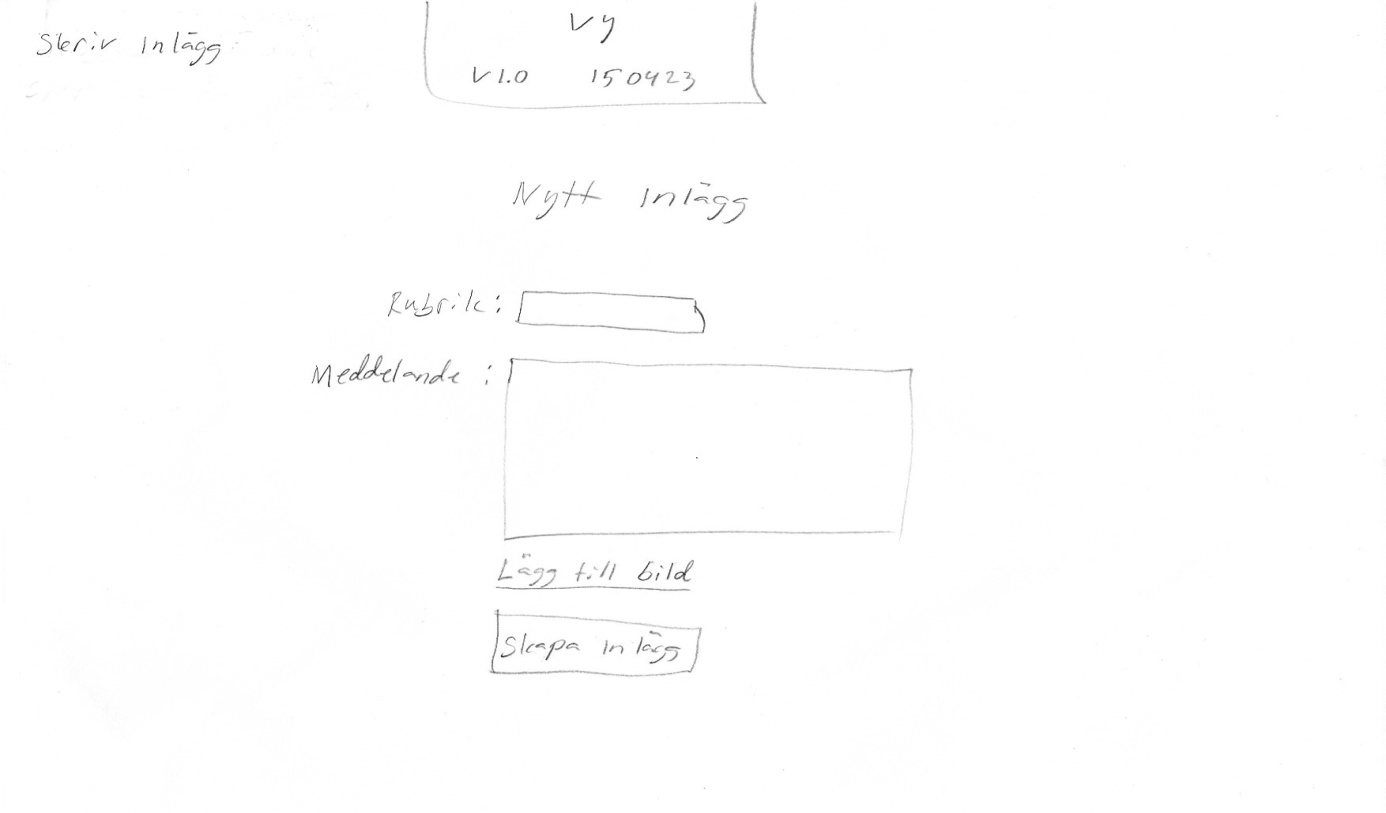 Skriv inlägg
Vy
V1.0 150423
Nytt inlägg
Rubrik:
Meddelande:
Lägg till bild
Skapa inlägg